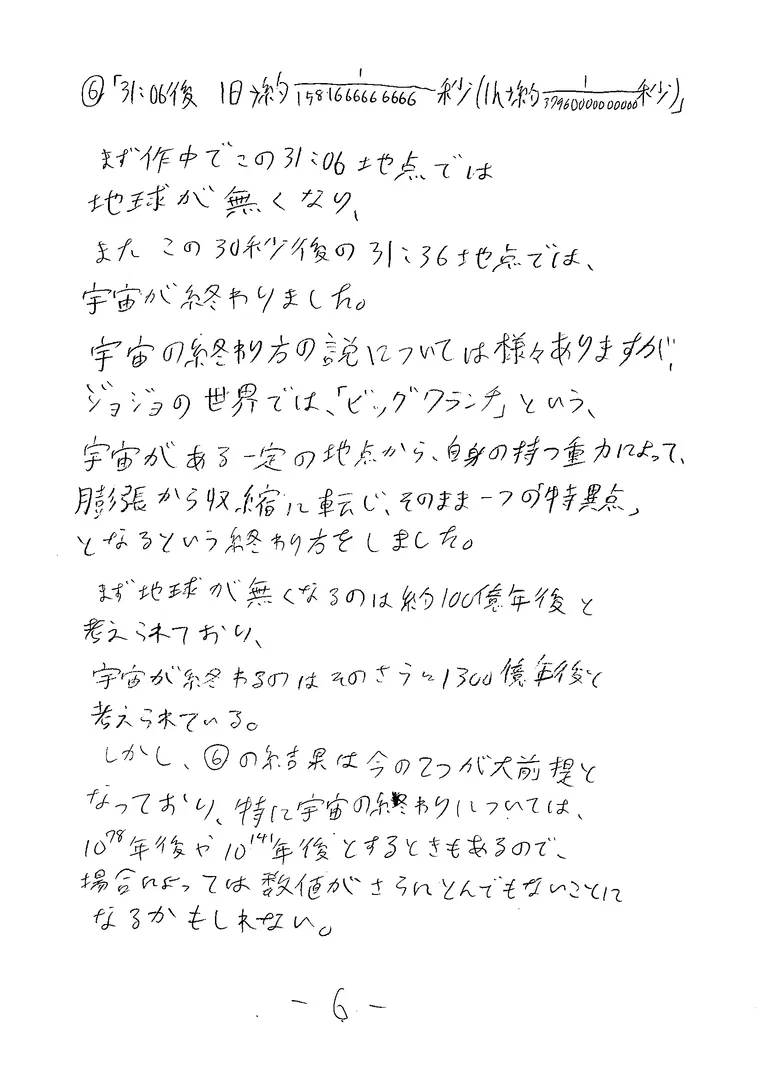 ⑥「31:06後 1日→約1/1581666666666秒(1h→約1/37960000000000秒)」
まず作中でこの31:06地点では
地球が無くなり、
またこの30秒後の31:36地点では、
宇宙が終わりました。
宇宙の終わり方の説については様々ありますが、
ジョジョの世界では、「ビッグクランチ」という、
宇宙がある一定の地点から、自身の持つ重力によって、
膨張から収縮に転じ、そのまま一つの「特異点」
となるという終わり方をしました。
まず地球が無くなるのは約100億年後と
考えられており、
宇宙が終わるのはそのさらに1300億年後と
考えられている。
しかし、⑥の結果は今の2つが大前提と
なっており、特に宇宙の終わりについては、
10^78年後や10^141年後とするときもあるので、
場合によっては数値がさらにとんでもないことに
なるかもしれない。
-6-